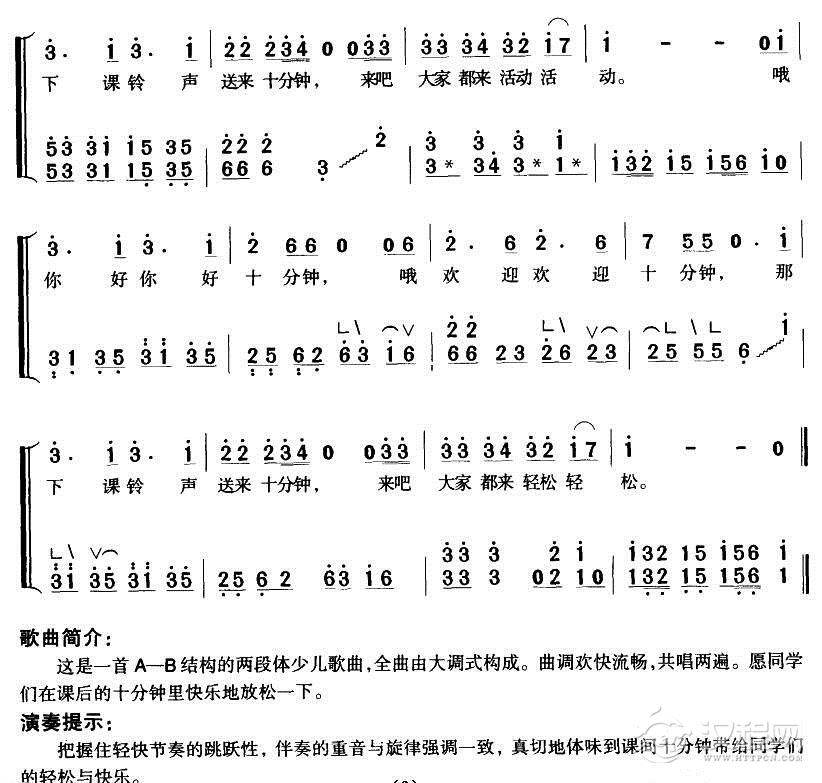 3̇. 1̇ 3̇. 1̇ | 2̇2̇ 2̇3̇4̇ 0 03̇3̇ | 3̇3̇ 3̇4̇ 3̇2̇ 1̇7 | 1̇ - - 01̇
下 课 铃 声 送来 十分钟， 来吧 大家 都来 活动 活 动。 哦
5̇3̇ 3̇1̇ 1̇5 35 | 2̇2̇ 2̇ 2̇ 3̇ 3̇ 3̇ 1̇
53 31 15 35 | 66 6 3 | 3* 34 3* 1* | 1̇3̇2̇ 1̇5 1̇56 1̇0
3̇. 1̇ 3̇. 1̇ | 2̇ 66 0 06 | 2̇. 6 2̇. 6 | 7 55 0. 1̇
你 好 你 好 十 分钟， 哦 欢 迎 欢 迎 十 分钟， 那
2̇2̇ 2̇ 1̇
31 35 31 35 | 25 62 63 16 | 66 23 26 23 | 25 55 6
3̇. 1̇ 3̇. 1̇ | 2̇2̇ 2̇3̇4̇ 0 03̇3̇ | 3̇3̇ 3̇4̇ 3̇2̇ 1̇7 | 1̇ - - 0
下 课 铃 声 送来 十分钟， 来吧 大家 都来 轻松 轻 松。
3̇3̇ 3̇ 2̇ 1̇ 1̇32 15 156 1̇
31 35 31 35 | 25 62 63 16 | 33 3 02 10 | 132 15 156 1
歌曲简介：
这是一首A—B结构的两段体少儿歌曲，全曲由大调式构成。曲调欢快流畅，共唱两遍。愿同学
们在课后的十分钟里快乐地放松一下。
演奏提示：
把握住轻快节奏的跳跃性，伴奏的重音与旋律强调一致，真切地体味到课间十分钟带给同学们
的轻松与快乐。